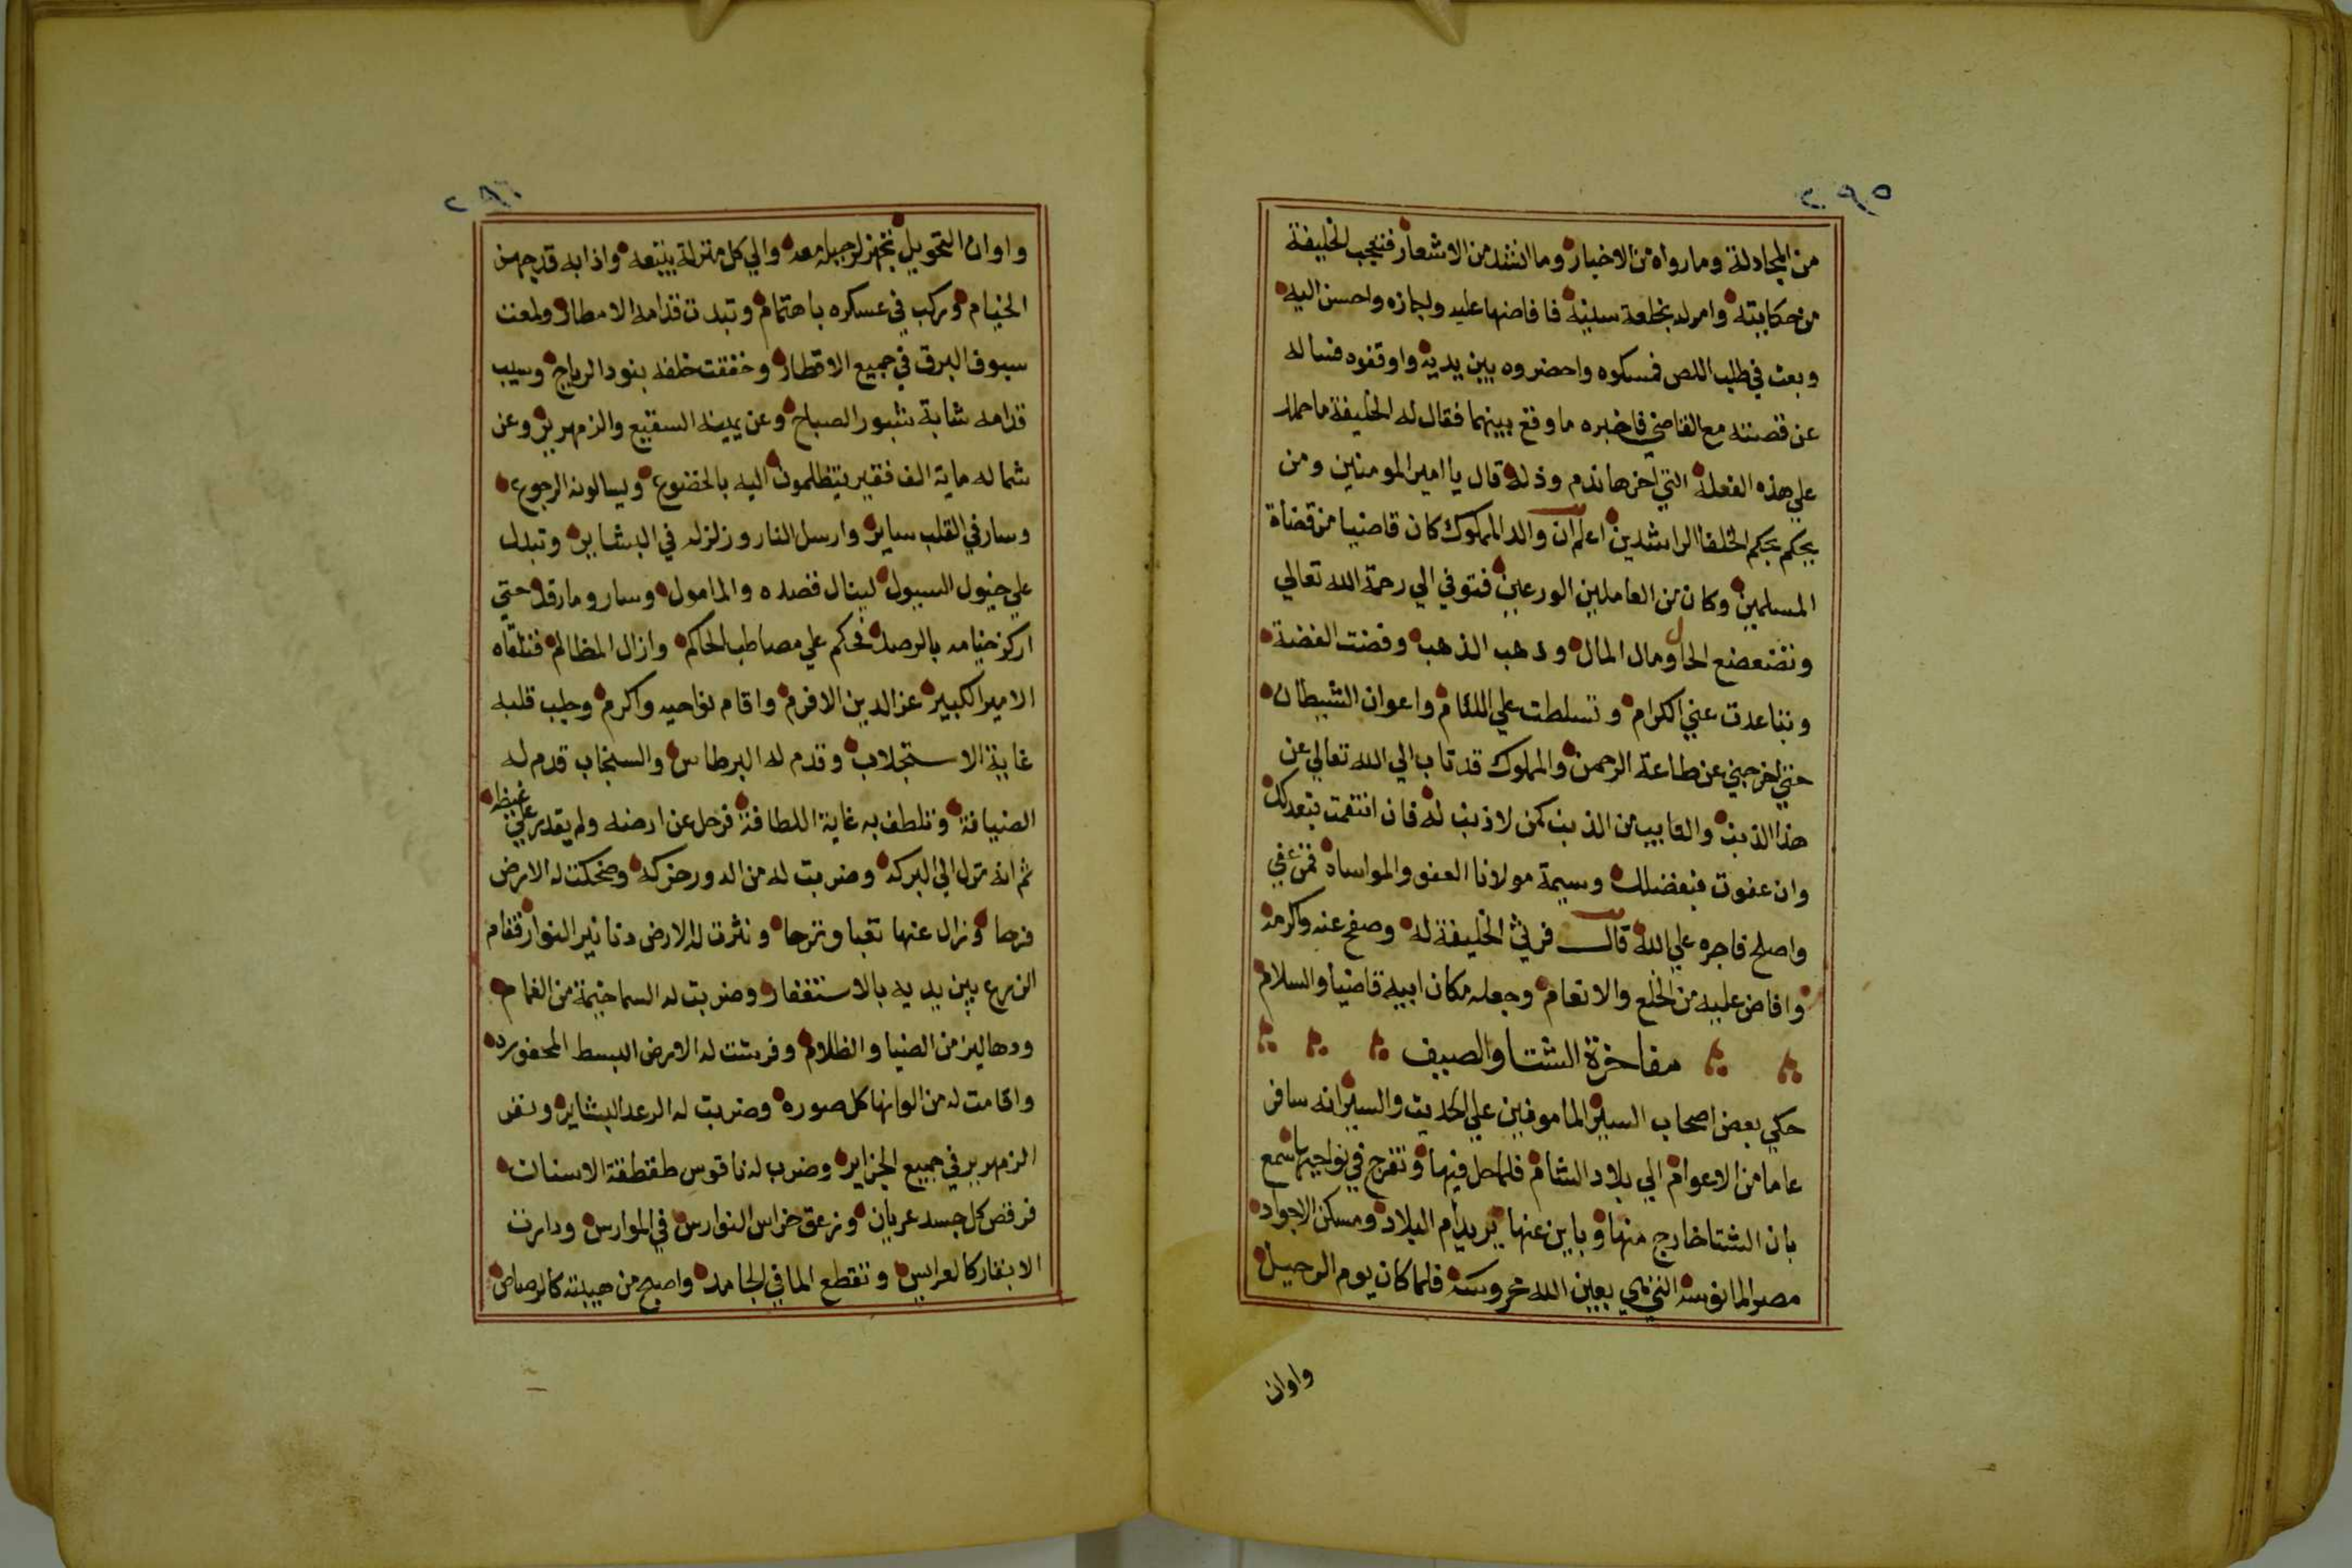 ٢٩٥
من المجادلة وما رواه من الاخبار وما انشد من الاشعار فتعجب الخليفة
من حكايته وامر له بخلعة سنية فافاضها عليه واجازه واحسن اليه
وبعث في طلب اللص فمسكوه واحضروه بين يديه واوقفوه فساله
عن قصته مع القاضي فاخبره ما وقع بينهما فقال له الخليفة ما حملك
علي هذه الفعلة التي اخرها ندم وذلة قال يا امير المومنين ومن
يحكم بحكم الخلفا الراشدين اعلم ان والد المملوك كان قاضيا من قضاة
المسلمين وكان من العاملين الورعين فتوفي الي رحمة الله تعالي
وتضعضع الحال ومال المال وذهب الذهب وفضت الفضة
وتباعدت عني الكرام وتسلطت علي اللئام واعوان الشيطان
حتي اخرجني عن طاعة الرحمن والمملوك قد تاب الي الله تعالي عن
هذا الذنب والتايب من الذنب كمن لا ذنب له فان انتقمت فبعدلك
وان عفوت فبفضلك وسيمة مولانا العفو والمواساه فمن عفي
واصلح فاجره علي الله قال فرثي الخليفة له وصفح عنه واكرمه
وافاض عليه من الخلع والانعام وجعله مكان ابيه قاضيا والسلام
مفاخرة الشتا والصيف
حكي بعض اصحاب السير المامونين علي الحديث والسير انه سافر
عاما من الاعوام الي بلاد الشام فلما حل فيها وتفرج في نواحيها سمع
بان الشتا خارج منها وباين عنها يريد ام البلاد ومسكن الاجواد
مصر المانوسه التي هي بعين الله محروسه فلما كان يوم الرحيل
واوان
٢٩٦
واوان التحويل تجهز لرحيله معه والي كل منزلة يتبعه واذا به قد جهز
الخيام وركب في عسكره باهتمام وتبدت قدامه الامطار ولمعت
سيوف البرق في جميع الاقطار وخفقت خلفه بنود الرياح وسيب
قدامه شابة شبور الصباح وعن يمينه السقيع والزمهرير وعن
شماله ماية الف فقير يتظلمون اليه بالخضوع ويسالونه الرجوع
وسار في القلب ساير وارسل النار وزلزله في البشاير وتبدل
علي خيول السيول لينال قصده والمامول وسار وما رقد حتي
اركز خيامه بالرصد فحكم علي مصاطب الحاكم وازال المظالم فتلقاه
الامير الكبير عز الدين الافرم واقام نواحيه واكرم وجلب قلبه
غاية الاستجلاب وقدم له البرطاس والسنجاب قدم له
الضيافة وتلطف به غاية اللطافة فرحل عن ارضه ولم يقدر علي غيظه
ثم انه نزل الي البركه وضربت له من الدور حركه وضحكت له الارض
فرحا وزال عنها تعبا وترحا ونثرت له الارض دنانير النوار فقام
الزرع بين يديه بالاستغفار وضربت له السما خيمة من الغمام
ودهاليز من الضيا والظلام وفرشت له الارض البسط المحفوره
واقامت له من الوانها كل صوره وضربت له الرعد البشاير ونفر
الزمهرير في جميع الجزاير وضرب له ناقوس طقطقة الاسنان
فرقص كل جسد عريان وزعق خراس النوارس في الموارس ودارت
الابقار كالعرايس وتقطع الما في الجامد واصبح من هيبته كالرصاص